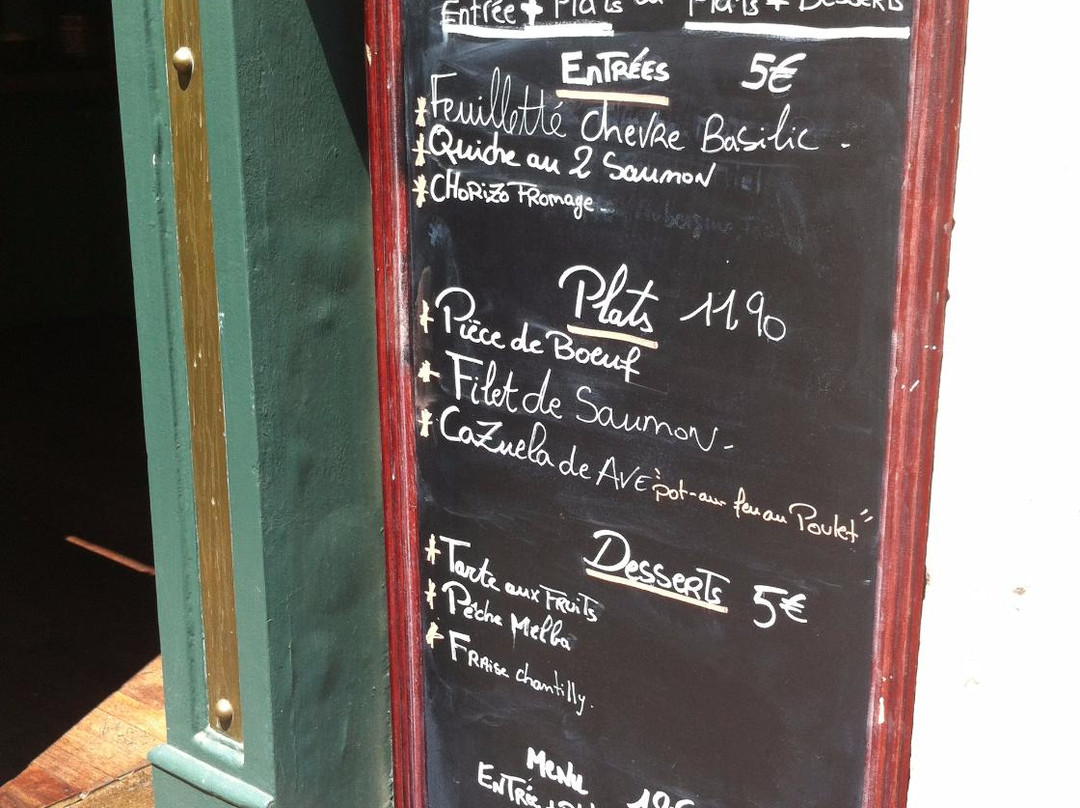 Entrée + Plats ou Plats + Desserts
EnTRÉES 5€
* Feuilletté chevre Basilic -
* Quiche au 2 Saumon
* CHoRizo FRomage -
Plats 11,90
* Pièce de Boeuf
* Filet de Saumon -
* Cazuela de AVE "pot-au feu au Poulet"
Desserts 5€
* Tarte aux FRuits
* Pêche Melba
* FRaise chantilly.
Menu
EnTRée